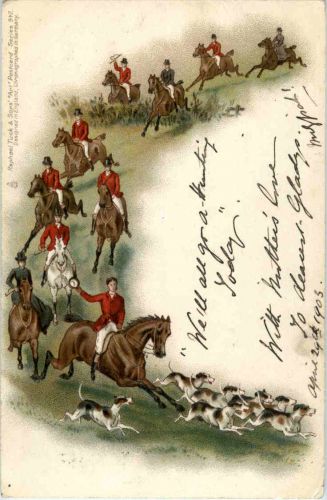 Raphael Tuck & Sons' "Art" Postcard. Series 997.
Designed in England, Chromographed in Germany.
"We'll all go a-Hunting
Today"
With Mother's love
To dearest Gladys.
April 29th 1903.